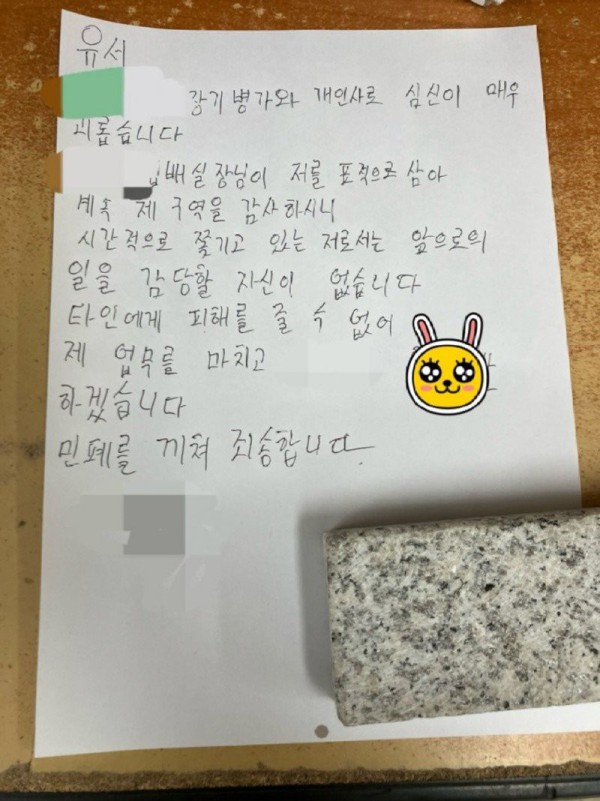 유서
장기병가와 개인사로 심신이 매우
괴롭습니다
배실장님이 저를 표적으로 삼아
계속 제 구역을 감사하시니
시간적으로 쫓기고 있는 저로서는 앞으로의
일을 감당할 자신이 없습니다
타인에게 피해를 줄 수 없어
제 업무를 마치고
하겠습니다
민폐를 끼쳐 죄송합니다